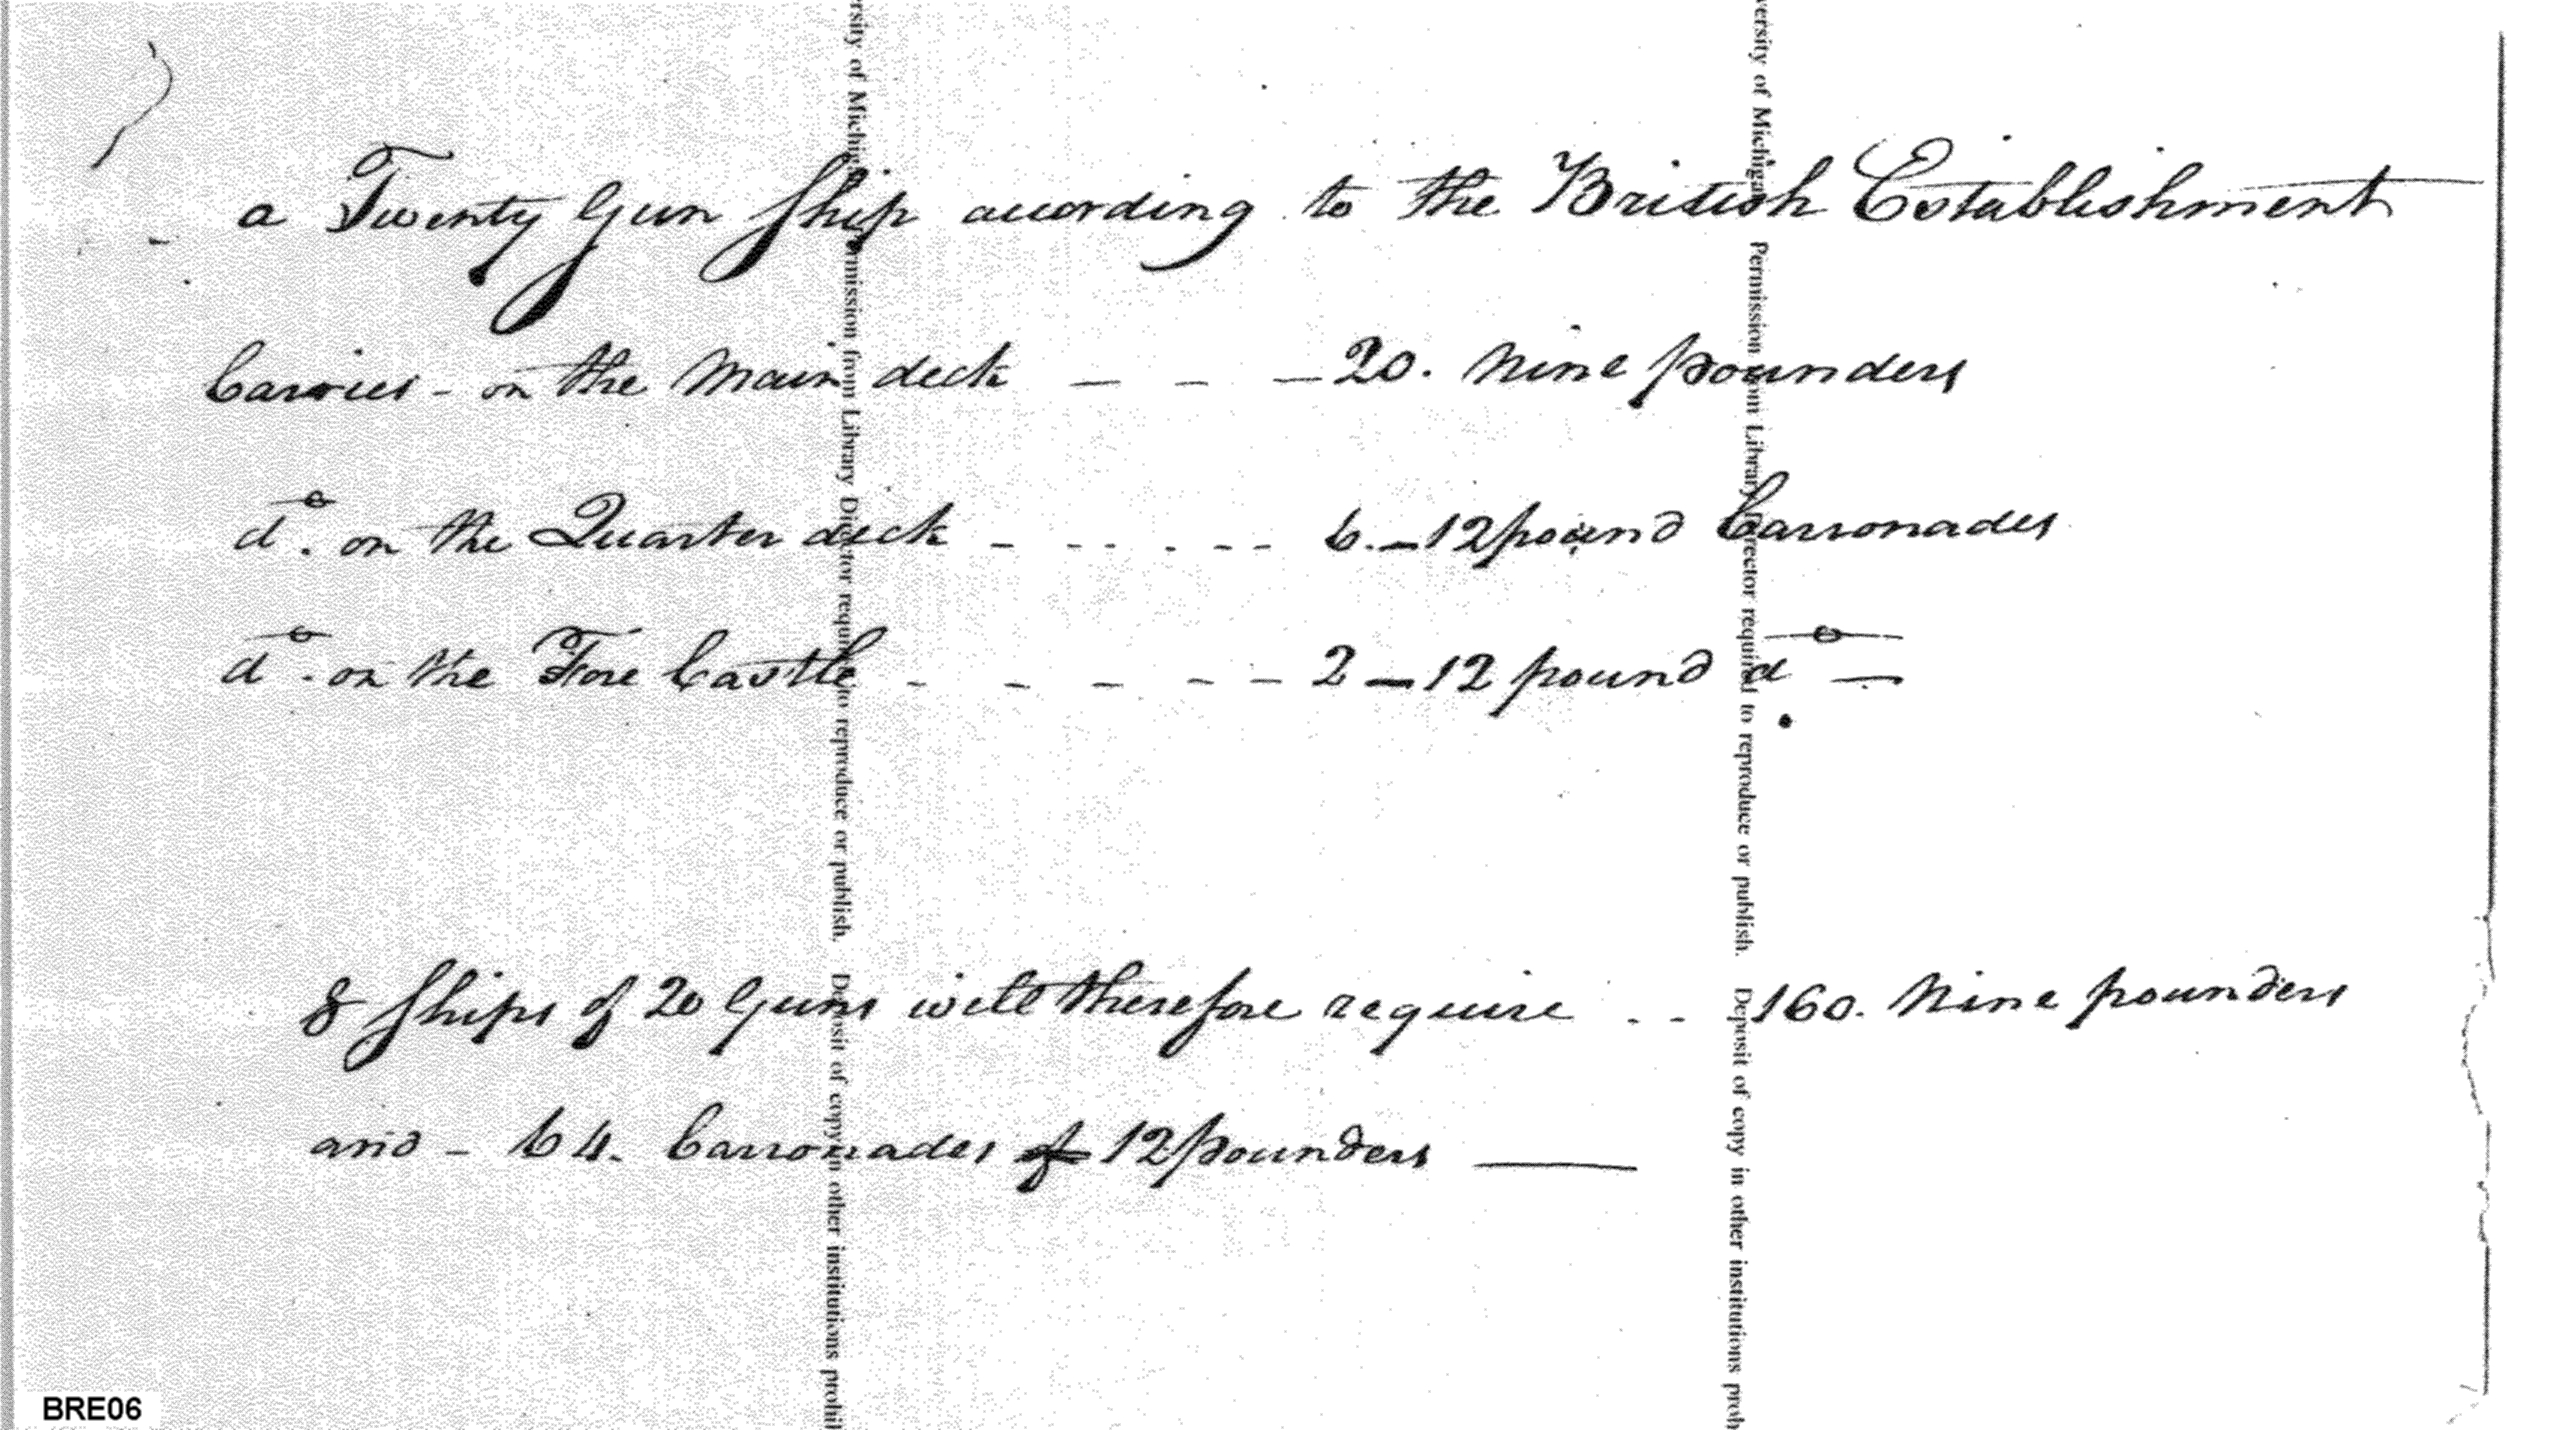 a Twenty Gun Ship acording to the British Establishment
Carries - on the Main deck - - - 20. Nine pounders
do. on the Quarter deck - - - - - - 6. - 12 pound Carronades
do. on the Fore Castle - - - - - 2 - 12 pound do. -
8 Ships of 20 Guns will therefore require - - 160. Nine pounders
and - 64. Carronades of 12 pounders -
ersity of Michigan Permission from Library Director required to reproduce or publish. Deposit of copy in other institutions prohi
versity of Michigan Permission from Library Director required to reproduce or publish. Deposit of copy in other institutions proh
BRE06